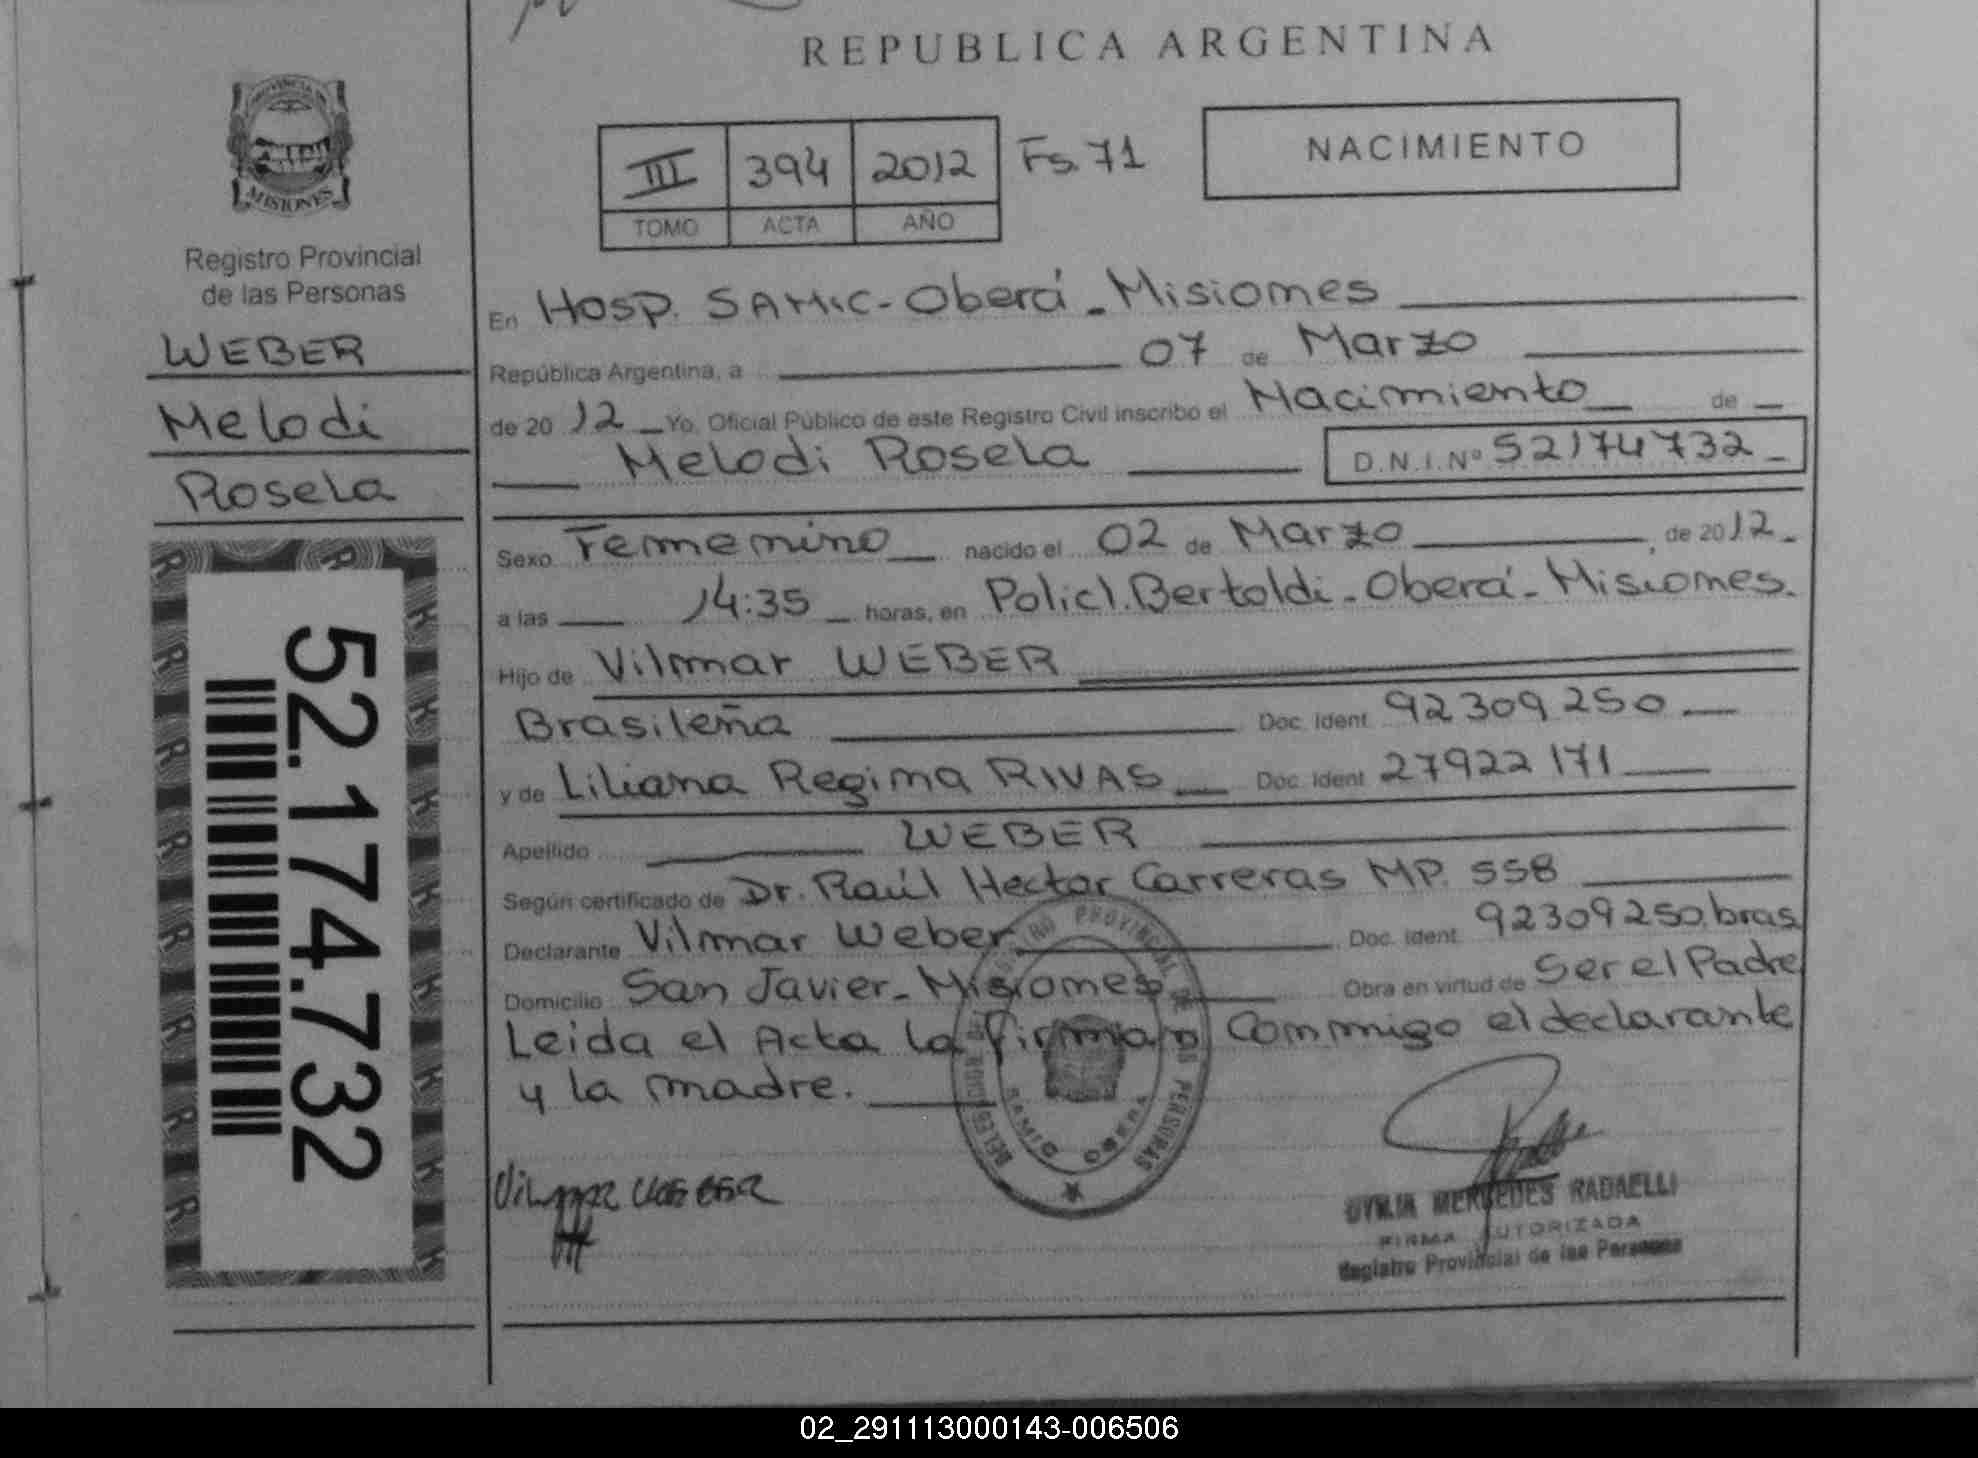 REPUBLICA ARGENTINA
PROVINCIA DE
MISIONES
Registro Provincial
de las Personas
WEBER
Melodi
Rosela
52.174.732
III 394 2012 Fs. 71
TOMO ACTA AÑO
NACIMIENTO
En Hosp. SAMIC - Oberá - Misiones
República Argentina, a 07 de Marzo
de 2012 Yo, Oficial Público de este Registro Civil inscribo el Nacimiento de
Melodi Rosela D.N.I.Nº 52174732
Sexo Femenino nacido el 02 de Marzo, de 2012
a las 14:35 horas, en Policl. Bertoldi - Oberá - Misiones.
Hijo de Vilmar WEBER
Brasileña Doc. Ident 92309250
y de Liliana Regina RIVAS Doc. Ident 27922171
Apellido WEBER
Según certificado de Dr. Raúl Hector Carreras MP. 558
Declarante Vilmar Weber Doc. Ident. 92309250.bras
Domicilio San Javier - Misiones Obra en virtud de Ser el Padre
Leida el Acta la firman Conmigo el declarante
y la madre.
MERCEDES RADAELLI
FIRMA AUTORIZADA
Registro Provincial de las Personas
02_291113000143-006506